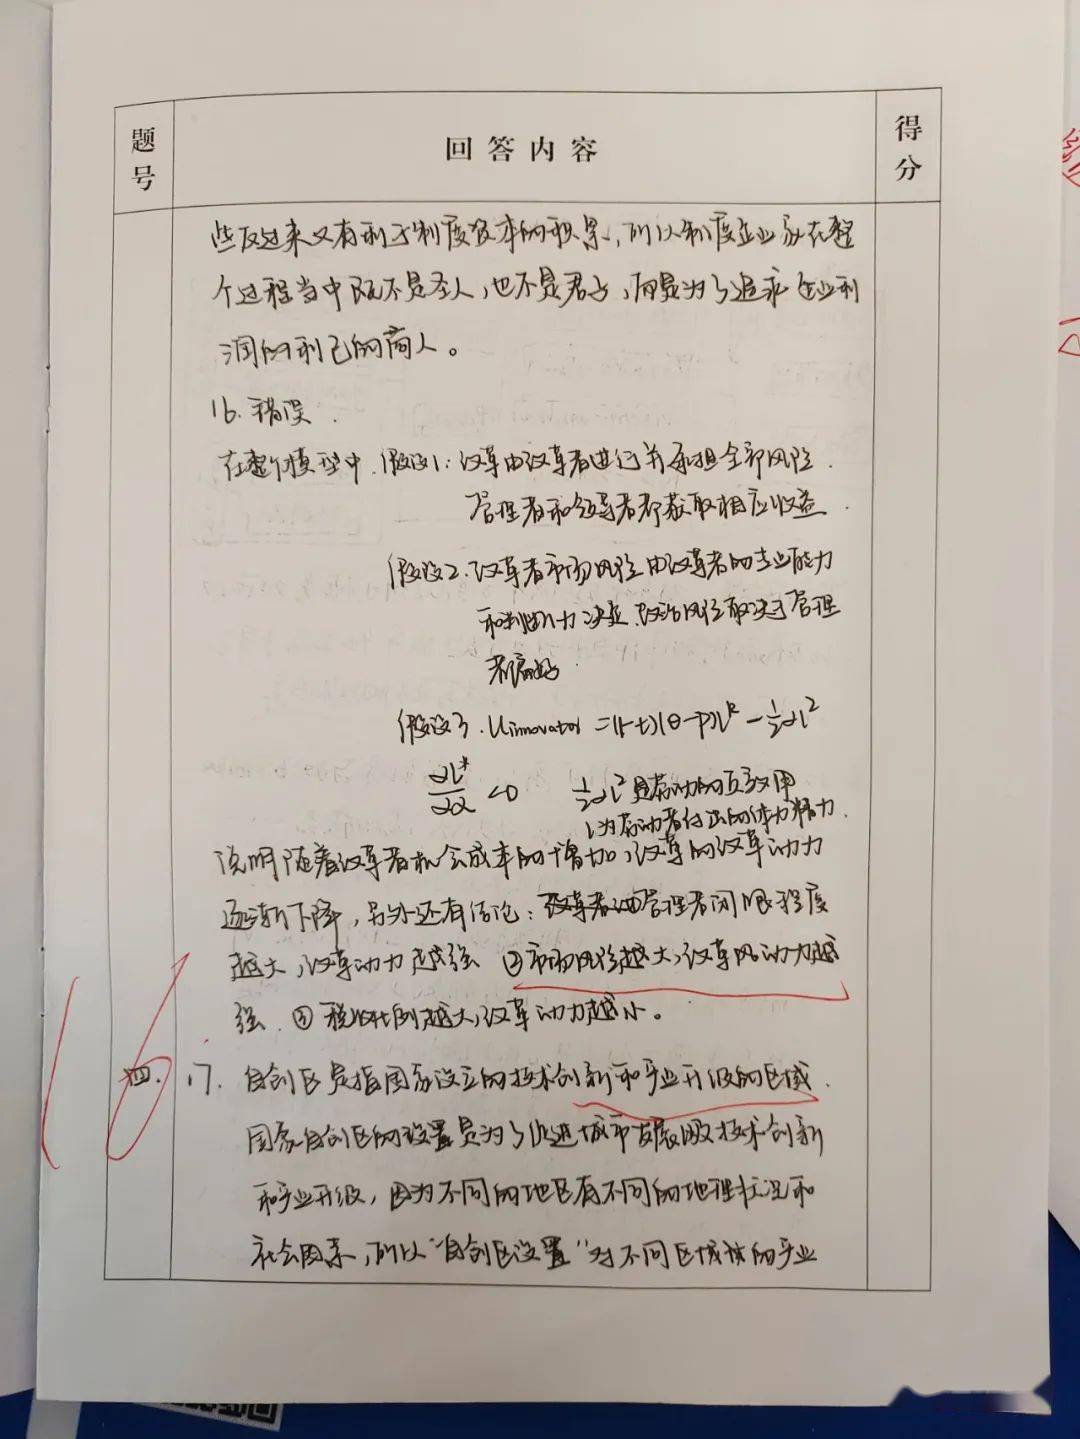 题号
回答内容
得分
些反过来又有利于制度资本的积累，所以制度企业家在整
个过程当中既不是圣人，也不是君子，而是为了追求企业利
润的利己的商人。
16. 错误．
在整个模型中．假设1：改革由改革者进行并承担全部风险．
管理者和领导者都获取相应收益．
假设2．改革者市场风险由改革者的专业能力
和判断力决定．政治风险取决于管理
者偏好．
假设3．Uinnovator =(1-t)(θ-P)lᴿ -½αl²
∂l*/∂α <0 ½αl²是劳动的负效用
l为劳动者付出的体力精力．
说明随着改革者机会成本的增加，改革的改革动力
逐渐下降，另外还有结论：管理者闭眼程度
越大，改革动力越强 ②市场风险越大，改革动力越
强．③税收比例越大，改革动力越小。
16
四． 17． 自创区是指国家设立的技术创新和产业升级的区域．
国家自创区的设置是为了促进城市发展以及技术创新
和产业升级，因为不同的地区有不同的地理状况和
社会因素，所以“自创区设置”对不同区域的产业